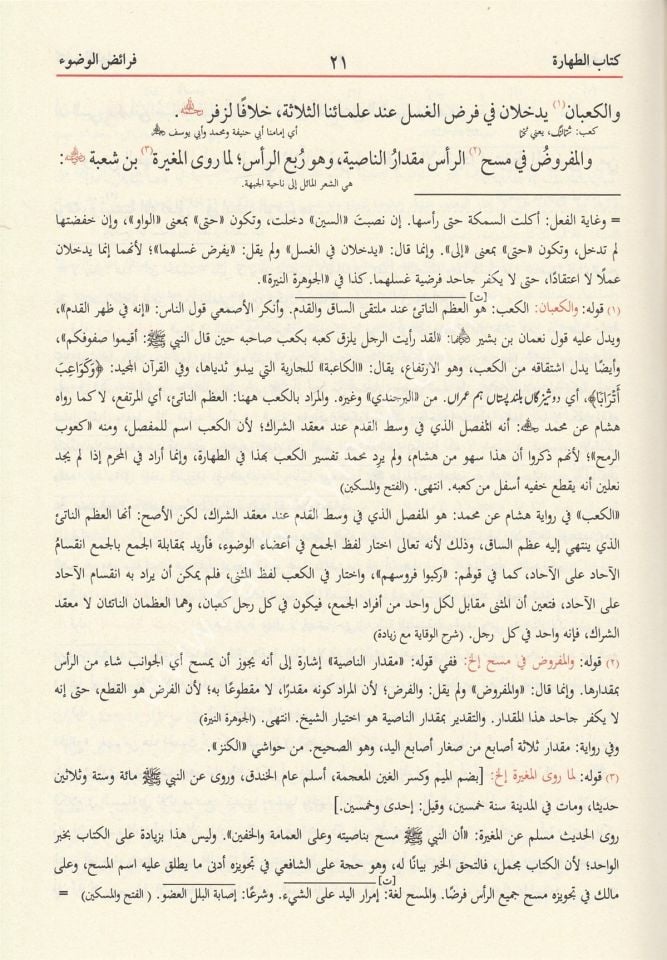 كتاب الطهارة ٢١ فرائض الوضوء
والكعبان(١) يدخلان في فرض الغسل عند علمائنا الثلاثة، خلافًا لزفر .
أي إمامنا أبي حنيفة ومحمد وأبي يوسف
والمفروضُ في مسح(٢) الرأس مقدارُ الناصية، وهو رُبع الرأس؛ لما روى المغيرة(٣) بن شعبة :
هي الشعر المائل إلى ناحية الجبهة.
= وغاية الفعل: أكلت السمكة حتى رأسها. إن نصبتَ «السين» دخلت، وتكون «حتى» بمعنى «الواو»، وإن خفضتها
لم تدخل، وتكون «حتى» بمعنى «إلى». وإنما قال: «يدخلان في الغسل» ولم يقل: «يفرض غسلهما»؛ لأنهما إنما يدخلان
عملًا لا اعتقادًا، حتى لا يكفر جاحد فرضية غسلهما. كذا في «الجوهرة النيرة».
(١) قوله: والكعبان: الكعب: هو [ت] العظم الناتئ عند ملتقى الساق والقدم. وأنكر الأصمعي قول الناس: «إنه في ظهر القدم»،
ويدل عليه قول نعمان بن بشير : «لقد رأيت الرجل يلزق كعبه بكعب صاحبه حين قال النبي ﷺ: أقيموا صفوفكم»،
وأيضًا يدل اشتقاقه من الكعب، وهو الارتفاع، يقال: «الكاعبة» للجارية التي يبدو ثدياها، وفي القرآن المجيد: ﴿وَكَوَاعِبَ
أَتْرَابًا﴾، أي دوشیزگان بلند پستان ہم عمراں. من «البرجندي» وغيره. والمراد بالكعب ههنا: العظم الناتئ، أي المرتفع، لا كما رواه
هشام عن محمد : أنه المفصل الذي في وسط القدم عند معقد الشراك؛ لأن الكعب اسم للمفصل، ومنه «كعوب
الرمح»؛ لأنهم ذكروا أن هذا سهو من هشام، ولم يرِد محمد تفسير الكعب بهذا في الطهارة، وإنما أراد في المحرم إذا لم يجد
نعلين أنه يقطع خفيه أسفل من كعبه. انتهى. (الفتح والمسكين)
«الكعب» في رواية هشام عن محمد: هو المفصل الذي في وسط القدم عند معقد الشراك، لكن الأصح: أنها العظم الناتئ
الذي ينتهي إليه عظم الساق، وذلك لأنه تعالى اختار لفظ الجمع في أعضاء الوضوء، فأريد بمقابلة الجمع بالجمع انقسامُ
الآحاد على الآحاد، كما في قولهم: «ركبوا فروسهم»، واختار في الكعب لفظ المثنى، فلم يمكن أن يراد به انقسام الآحاد
على الآحاد، فتعين أن المثنى مقابل لكل واحد من أفراد الجمع، فيكون في كل رجل كعبان، وهما العظمان الناتئان لا معقد
الشراك، فإنه واحد في كل رجل. (شرح الوقاية مع زيادة)
(٢) قوله: والمفروض في مسح إلخ: ففي قوله: «مقدار الناصية» إشارة إلى أنه يجوز أن يمسح أي الجوانب شاء من الرأس
بمقدارها. وإنما قال: «والمفروض» ولم يقل: والفرض؛ لأن المراد كونه مقدرًا، لا مقطوعًا به؛ لأن الفرض هو القطع، حتى إنه
لا يكفر جاحد هذا المقدار. والتقدير بمقدار الناصية هو اختيار الشيخ. انتهى. (الجوهرة النيرة)
وفي رواية: مقدار ثلاثة أصابع من صغار أصابع اليد، وهو الصحيح. من حواشي «الكنز».
(٣) قوله: لما روى المغيرة إلخ: [بضم الميم وكسر الغين المعجمة، أسلم عام الخندق، وروى عن النبي ﷺ مائة وستة وثلاثين
حديثا، ومات في المدينة سنة خمسين، وقيل: إحدى وخمسين.]
روى الحديث مسلم عن المغيرة: «أن النبي ﷺ مسح بناصيته وعلى العمامة والخفين». وليس هذا بزيادة على الكتاب بخبر
الواحد؛ لأن الكتاب مجمل، فالتحق الخبر بيانًا له، وهو حجة على الشافعي في تجويزه أدنى ما يطلق عليه اسم المسح، وعلى
مالك في تجويزه مسح جميع الرأس فرضًا. والمسح [ت] لغة: إمرار اليد على الشيء. وشرعًا: إصابة البلل العضو. (الفتح والمسكين) =